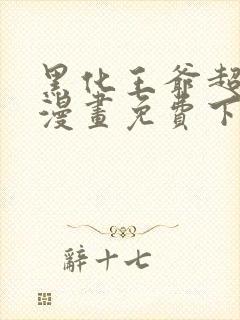 黑化王爺超
漫畫免費下
辭十七